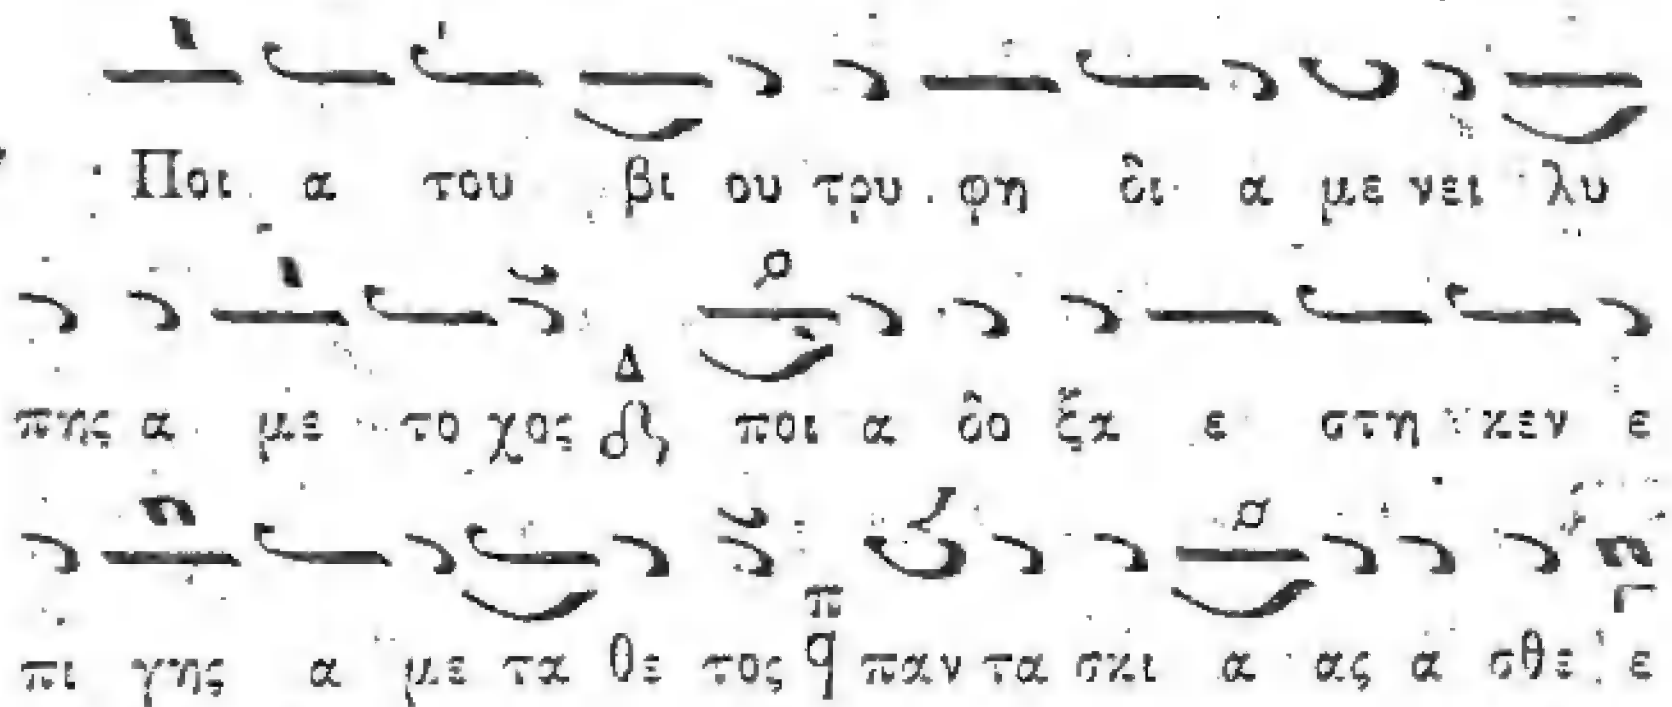 Ποι α του βι ου τρυ φη δι α με νει λυ
πης α με το χος ποι α δο ξα ε στη κεν ε
πι γης α με τα θε τος παν τα σκι α ας α σθε ε